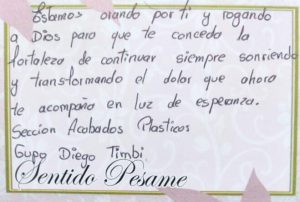 Estamos orando por ti y rogando
a Dios para que te conceda la
fortaleza de continuar siempre sonriendo
y transformando el dolor que ahora
te acompaña en luz de esperanza.
Seccion Acabados Plasticos
Gupo Diego Timbi
Sentido Pesame